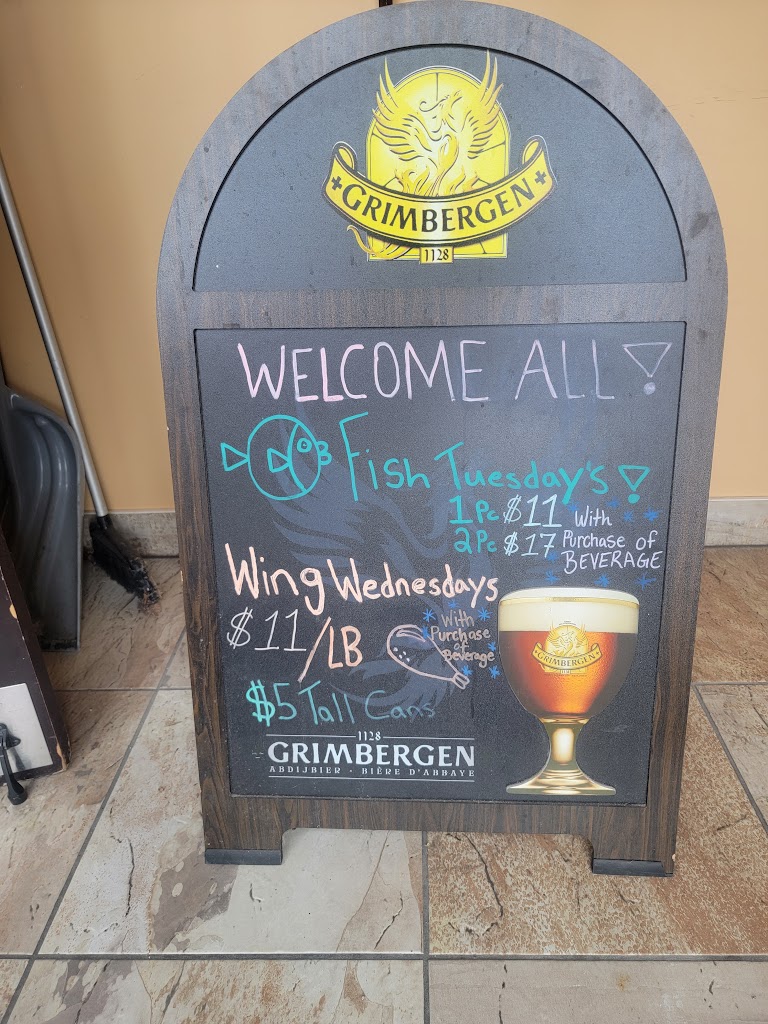 GRIMBERGEN
1128
WELCOME ALL!
Fish Tuesday's!
1Pc $11 With
2Pc $17 Purchase of
BEVERAGE
Wing Wednesdays
$11/LB
With
Purchase
of
Beverage
$5 Tall Cans
GRIMBERGEN
1128
GRIMBERGEN
ABDIJBIER - BIÈRE D'ABBAYE